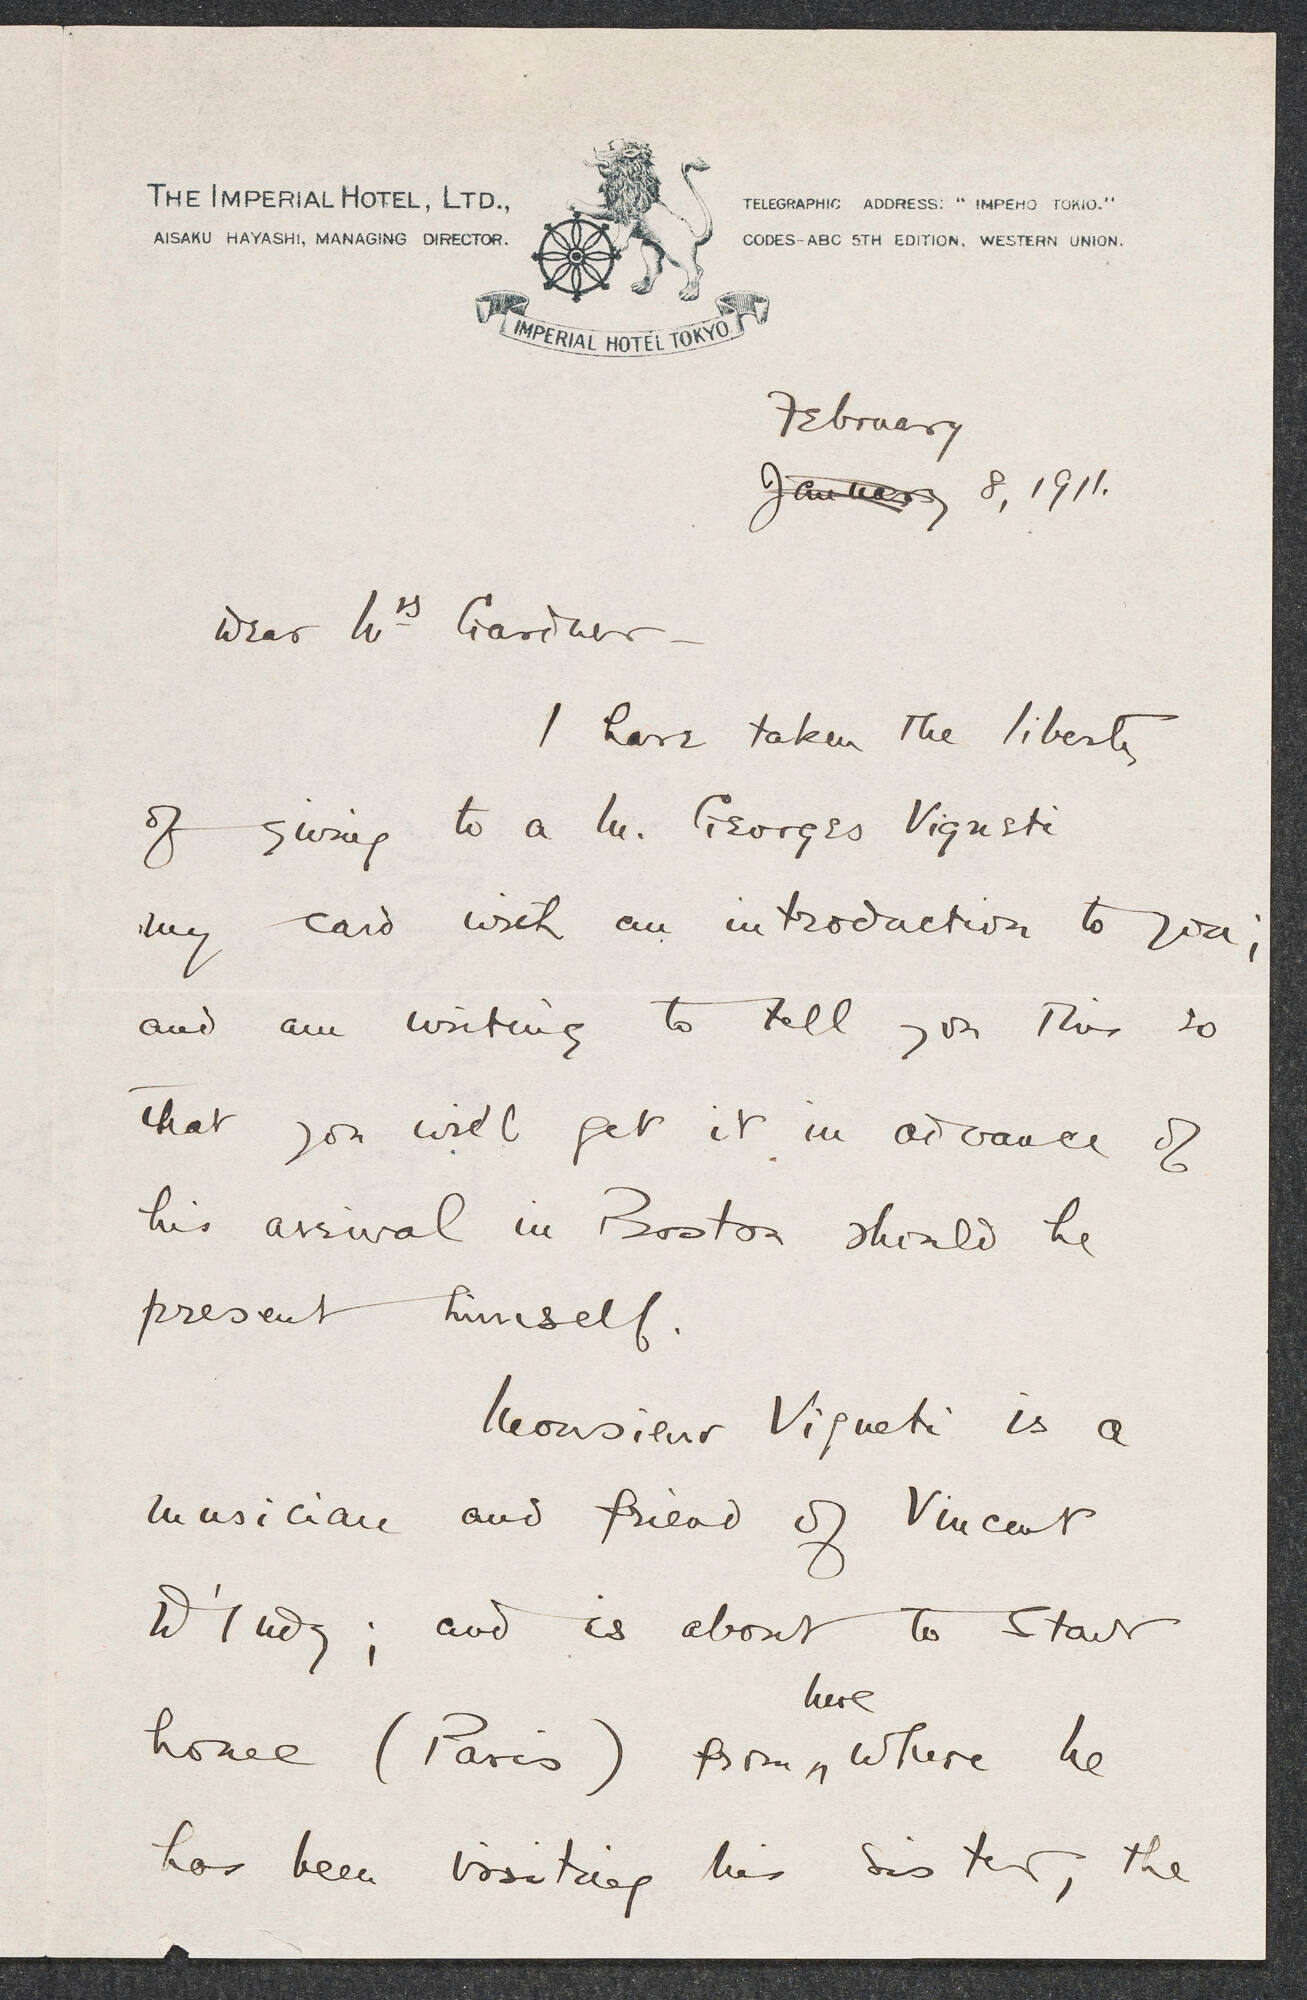 THE IMPERIAL HOTEL, LTD.,
AISAKU HAYASHI, MANAGING DIRECTOR.
TELEGRAPHIC ADDRESS: "IMPEHO TOKIO."
CODES-ABC 5TH EDITION, WESTERN UNION.
IMPERIAL HOTEL TOKYO
February
January 8, 1911.
Dear Mrs Gardner—
I have taken the liberty
of giving to a M. Georges Vigneti
my card with an introduction to you;
and am writing to tell you this so
that you will get it in advance of
his arrival in Boston should he
present himself.
Monsieur Vigneti is a
musician and friend of Vincent
D'Indy; and is about to start
here
home (Paris) from, where he
has been visiting his sister, the